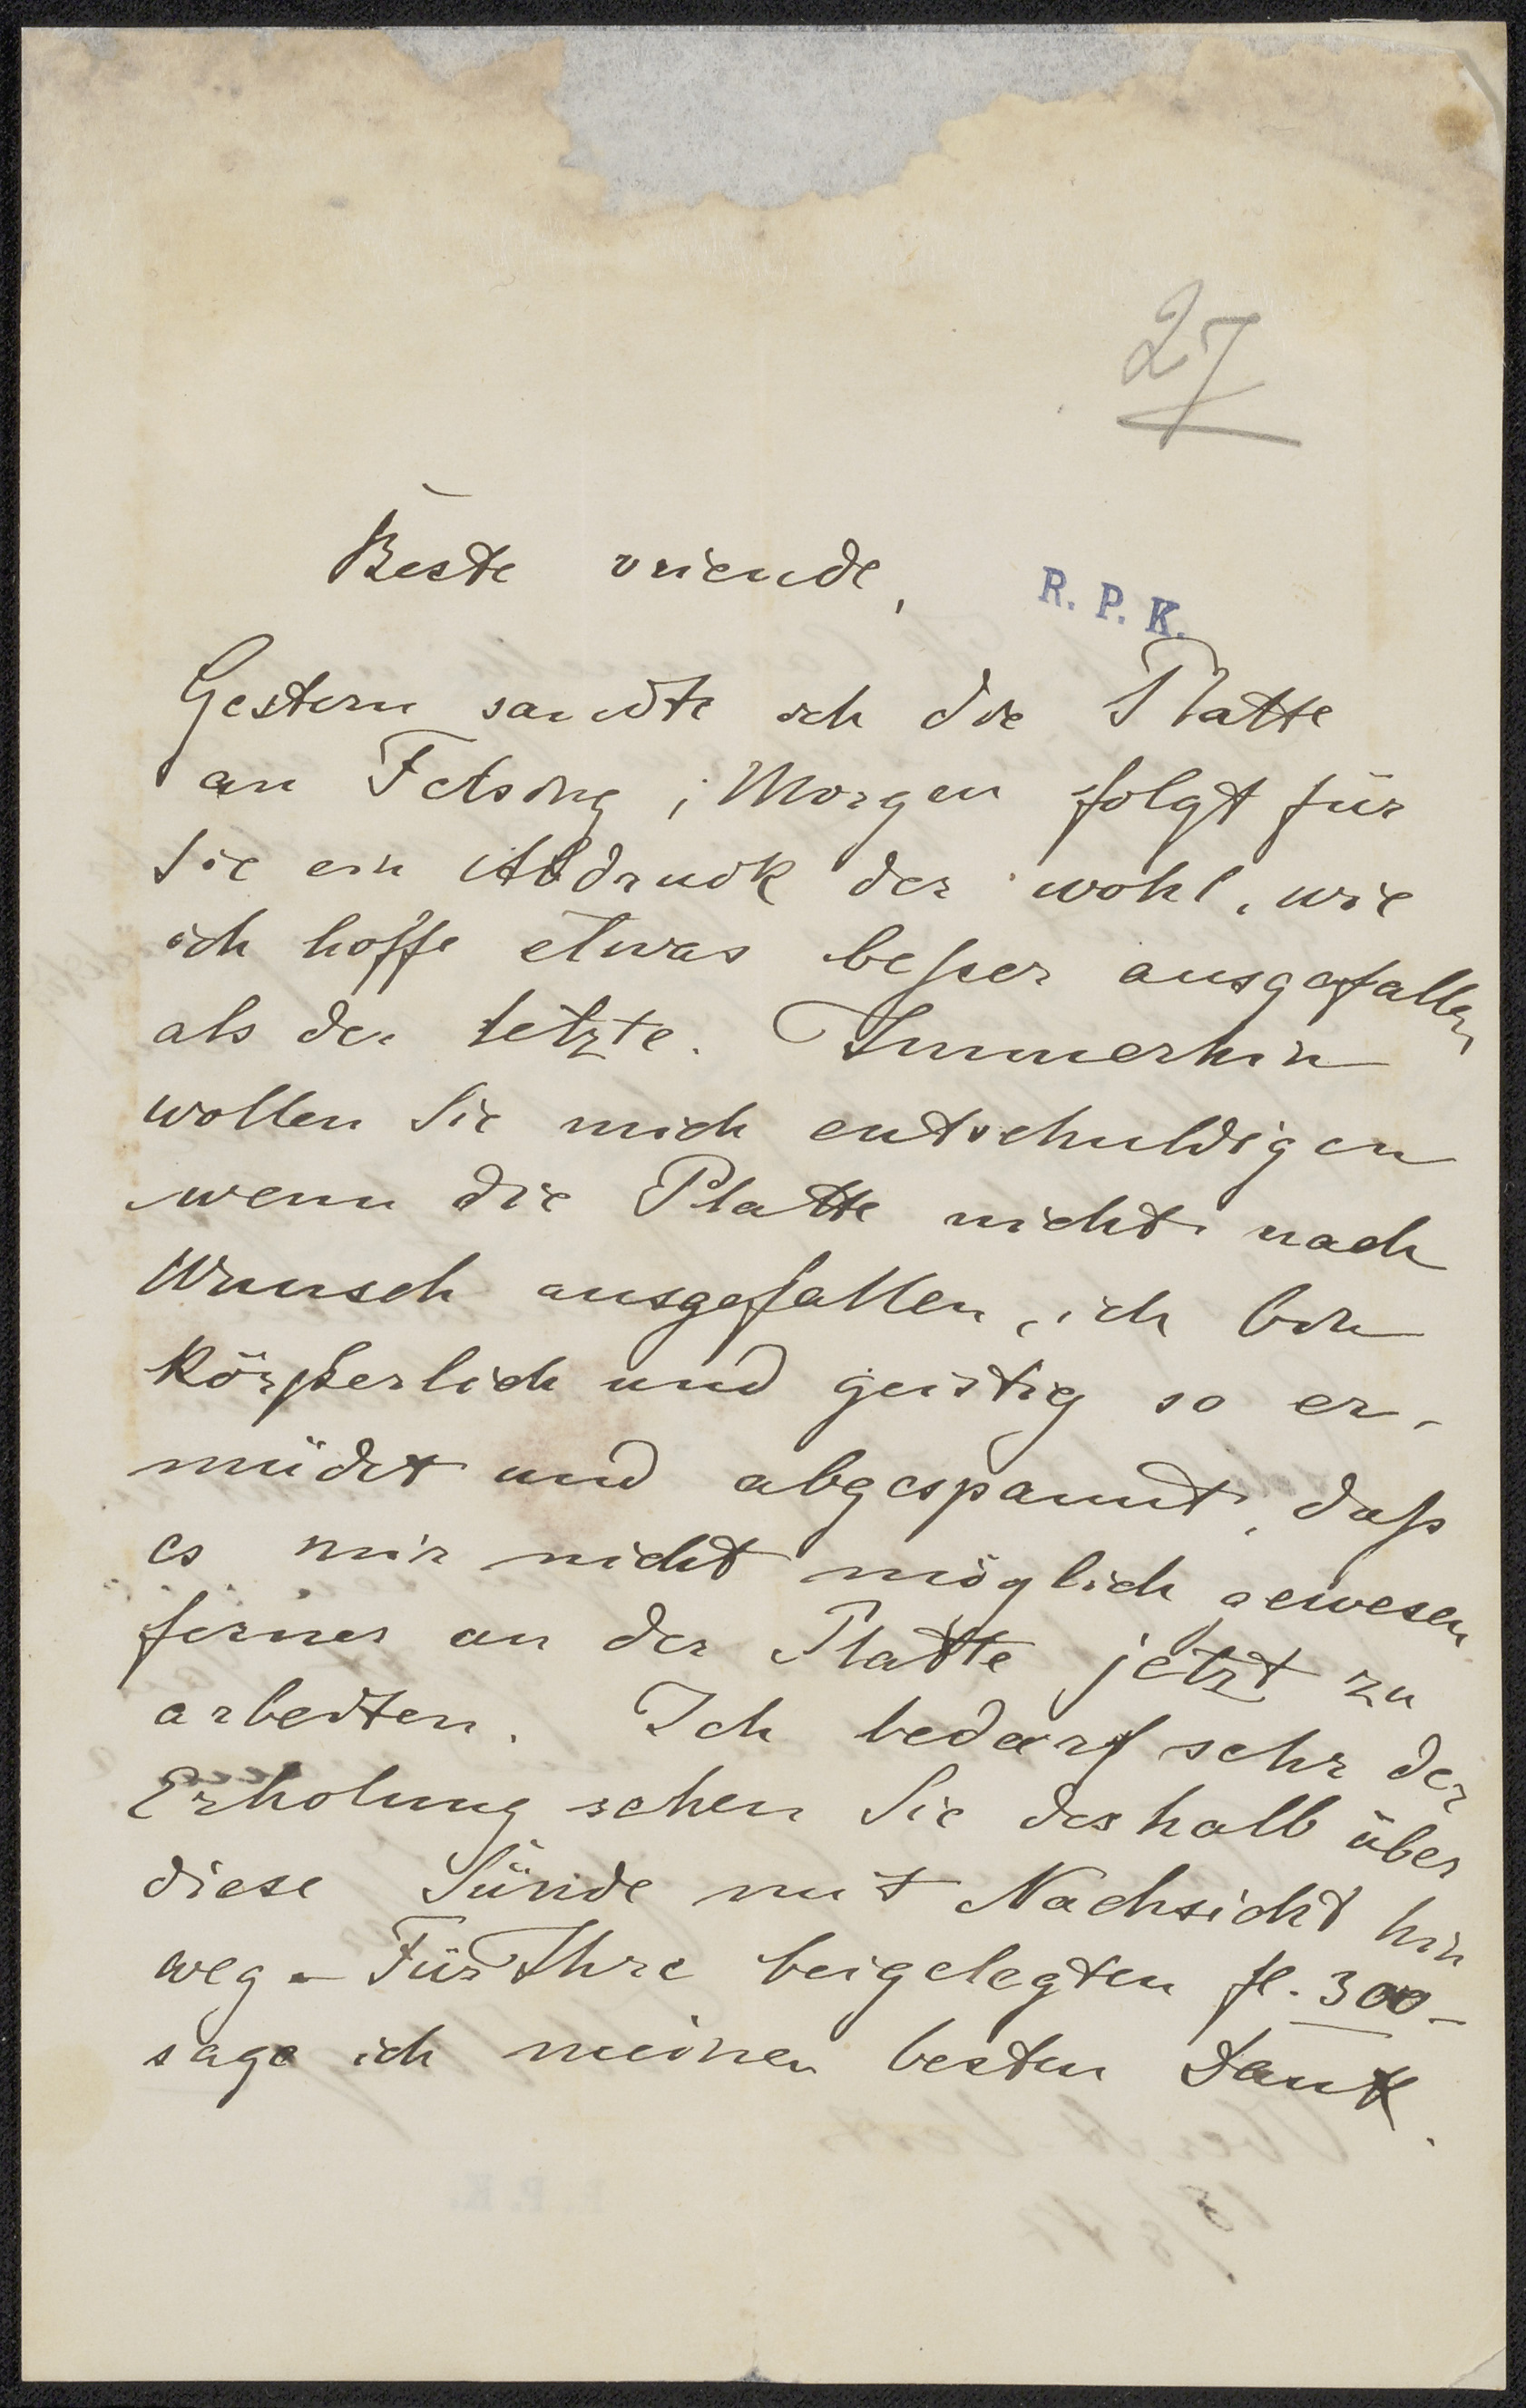 27
Beste vriende,
R. P. K.
Gestern sandte ich die Platte
an Felsing; Morgen folgt für
Sie ein Abdruck der wohl, wie
ich hoffe etwas beßer ausgefallen
als der letzte. Immerhin
wollen Sie mich entschuldigen
wenn die Platte nicht nach
Wunsch ausgefallen, ich bin
körperlich und geistig so er-
müdet und abgespannt, daß
es mir nicht möglich gewesen
ferner an der Platte jetzt zu
arbeiten. Ich bedarf sehr der
Erholung sehen Sie deshalb über
diese Sünde mit Nachsicht hin
weg – Für Ihre beigelegten fl. 300 –
sage ich meinen besten Dank.